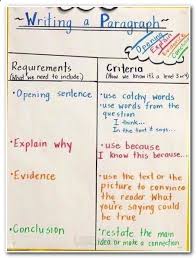 Writing a Paragraph
Opening
Explain
Evidence
Conclusion
Requirements
(What we need to include)
Criteria
(How we know it's a level 3 or 4)
• Opening sentence
• use catchy words
• use words from the question
I think...
In the text it says...
• Explain why
• use because
I know this because...
• Evidence
• use the text or the
picture to convince
the reader What
you're saying could
be true
• Conclusion
• restate the main
idea or make a connection